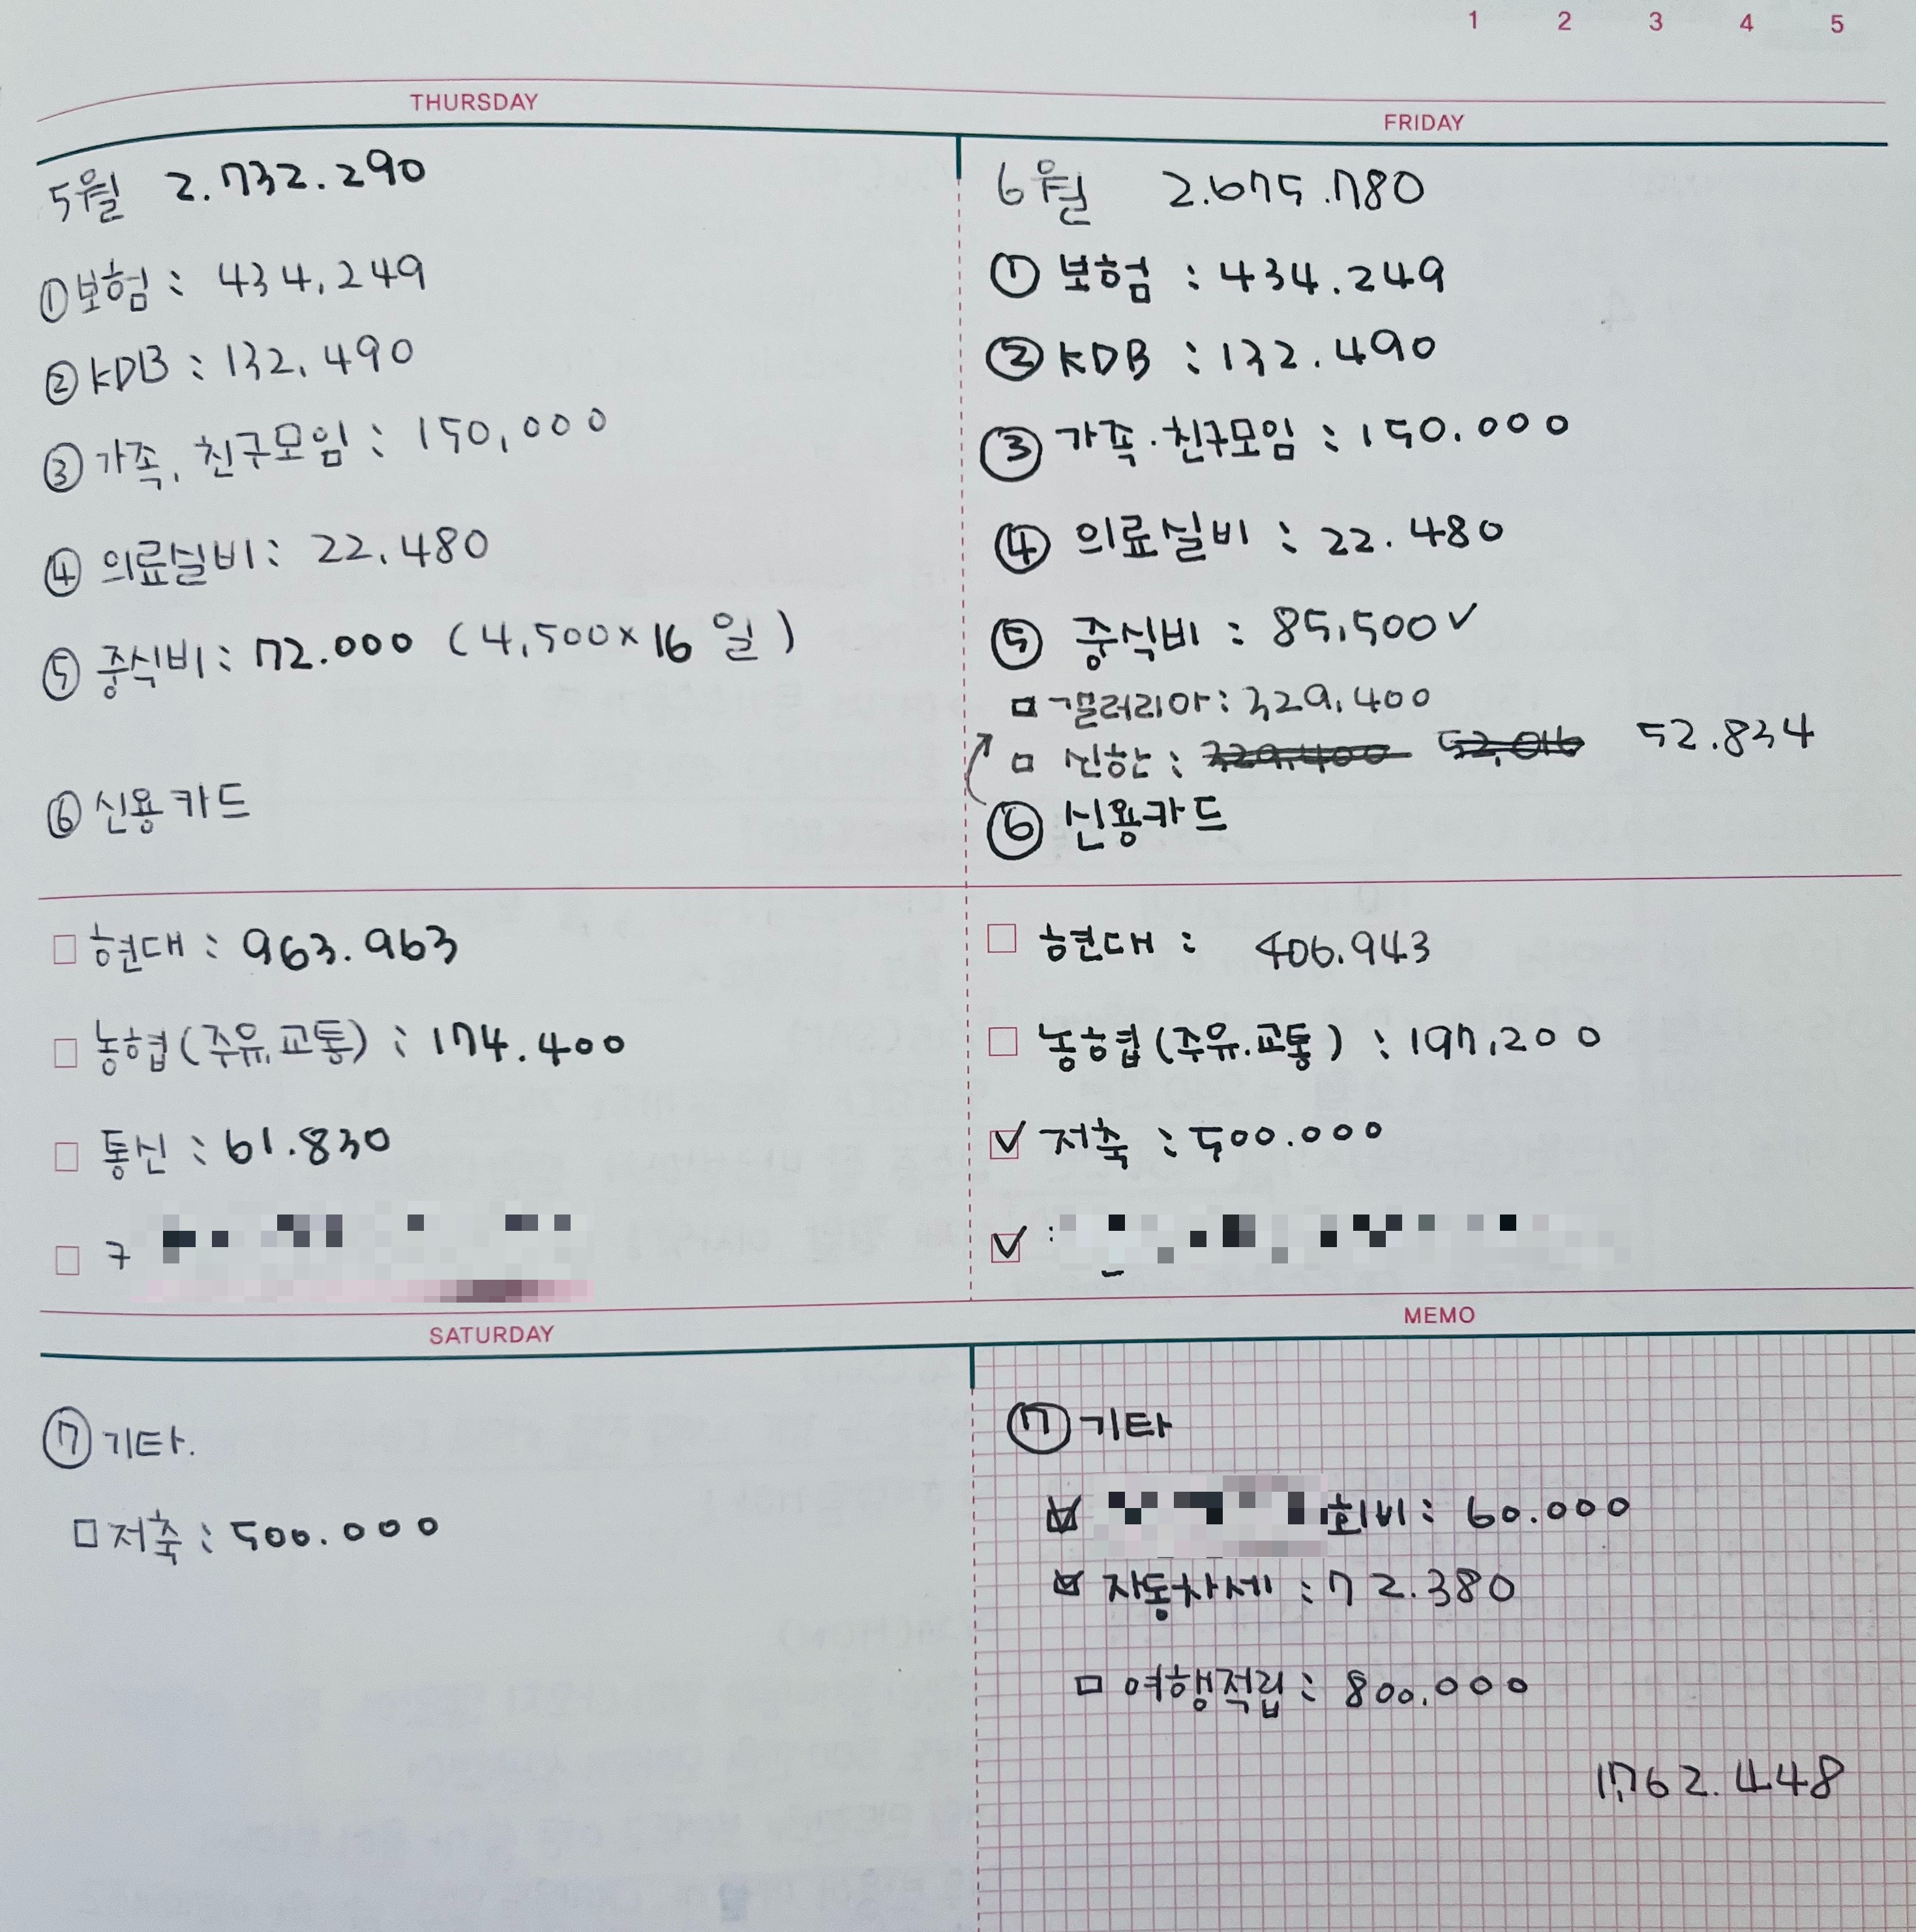 1 2 3 4 5
THURSDAY
5월 2.732.290
①보험 : 434,249
②KDB : 132,490
③가족, 친구모임 : 150,000
④의료실비 : 22,480
⑤중식비 : 72.000 (4,500×16일)
⑥신용카드
□현대 : 963.963
□농협(주유,교통) : 174.400
□통신 : 61.830
□
SATURDAY
⑦기타.
□저축 : 500.000
FRIDAY
6월 2.675.780
①보험 : 434.249
②KDB : 132.490
③가족·친구모임 : 150.000
④의료실비 : 22.480
⑤중식비 : 85,500✓
□갤러리아 : 329,400
□신한 : 329,400 52,016 52.834
⑥신용카드
□현대 : 406.943
□농협(주유.교통) : 197,200
☑저축 : 500.000
☑ :
MEMO
⑦기타
☑ 회비 : 60.000
☑자동차세 : 72.380
□여행적립 : 800.000
1,762.448